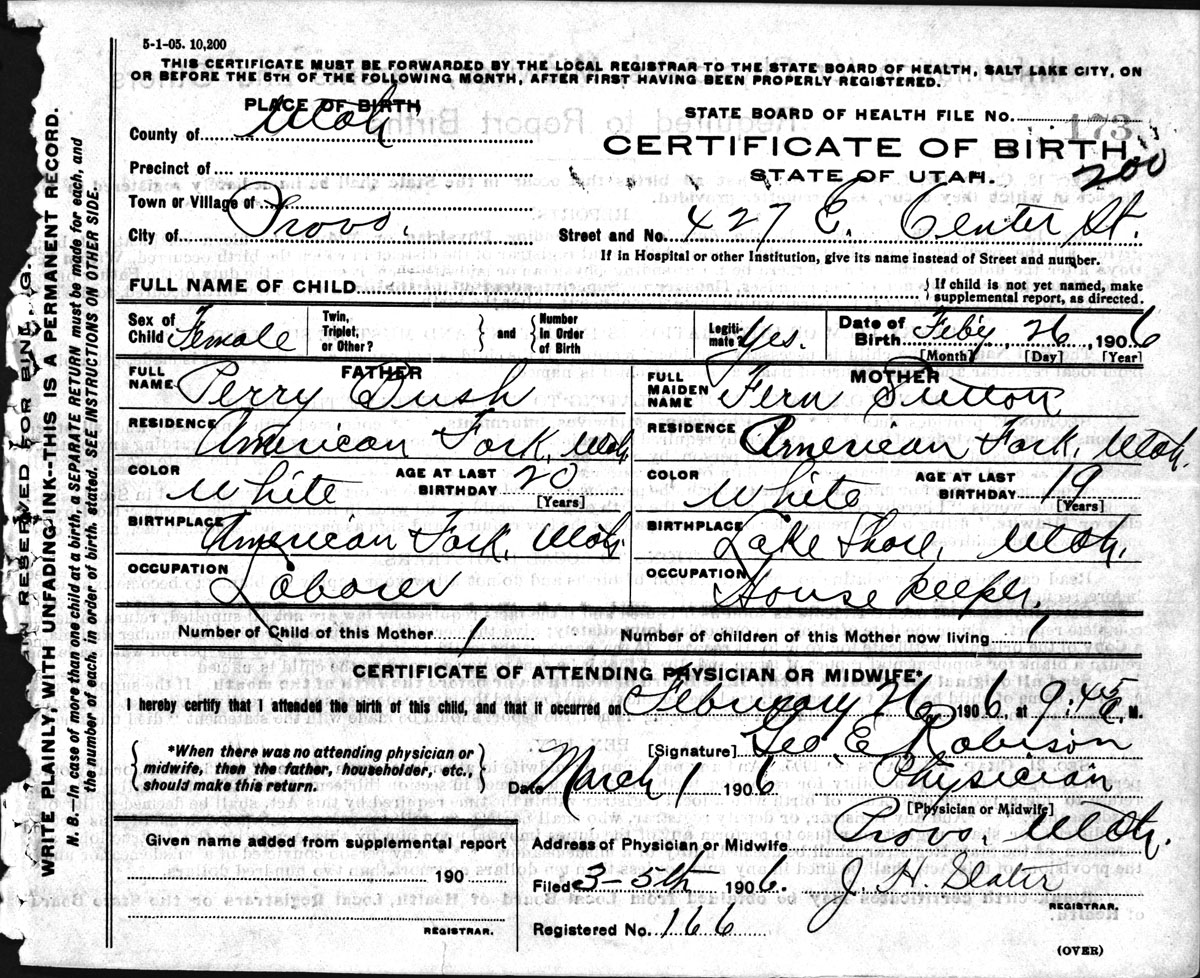 5-1-05. 10,200
THIS CERTIFICATE MUST BE FORWARDED BY THE LOCAL REGISTRAR TO THE STATE BOARD OF HEALTH, SALT LAKE CITY, ON
OR BEFORE THE 5TH OF THE FOLLOWING MONTH, AFTER FIRST HAVING BEEN PROPERLY REGISTERED.
PLACE OF BIRTH
County of Utah
Precinct of
Town or Village of
City of Provo.
STATE BOARD OF HEALTH FILE No. 173
CERTIFICATE OF BIRTH
200
STATE OF UTAH.
Street and No. 427 E. Center St.
If in Hospital or other Institution, give its name instead of Street and number.
FULL NAME OF CHILD { If child is not yet named, make supplemental report, as directed.
Sex of Child Female Twin, Triplet, or Other? } and { Number In Order of Birth Legiti-mate? Yes. Date of Birth Feby 26, 1906
[Month] [Day] [Year]
FATHER
FULL NAME Perry Bush
RESIDENCE American Fork, Utah
COLOR White AGE AT LAST BIRTHDAY 20 [Years]
BIRTHPLACE American Fork, Utah
OCCUPATION Laborer
MOTHER
FULL MAIDEN NAME Fern Sutton
RESIDENCE American Fork, Utah.
COLOR White AGE AT LAST BIRTHDAY 19 [Years]
BIRTHPLACE Lake Shore, Utah.
OCCUPATION House Keeper.
Number of Child of this Mother 1 Number of children of this Mother now living 1
CERTIFICATE OF ATTENDING PHYSICIAN OR MIDWIFE*
I hereby certify that I attended the birth of this child, and that it occurred on February 26, 1906, at 9:45 P. M.
{ *When there was no attending physician or midwife, then the father, householder, etc., should make this return. }
[Signature] Geo E Robison
Date March 1 1906. Physician
[Physician or Midwife]
Address of Physician or Midwife Provo, Utah.
Given name added from supplemental report
190
REGISTRAR.
Filed 3-5th 1906. J. H. Slater
REGISTRAR.
Registered No. 166
(OVER)
IN RESERVED FOR BINDING.
WRITE PLAINLY, WITH UNFADING INK--THIS IS A PERMANENT RECORD.
N. B. In case of more than one child at a birth, a SEPARATE RETURN must be made for each, and
the number of each, in order of birth, stated. SEE INSTRUCTIONS ON OTHER SIDE.